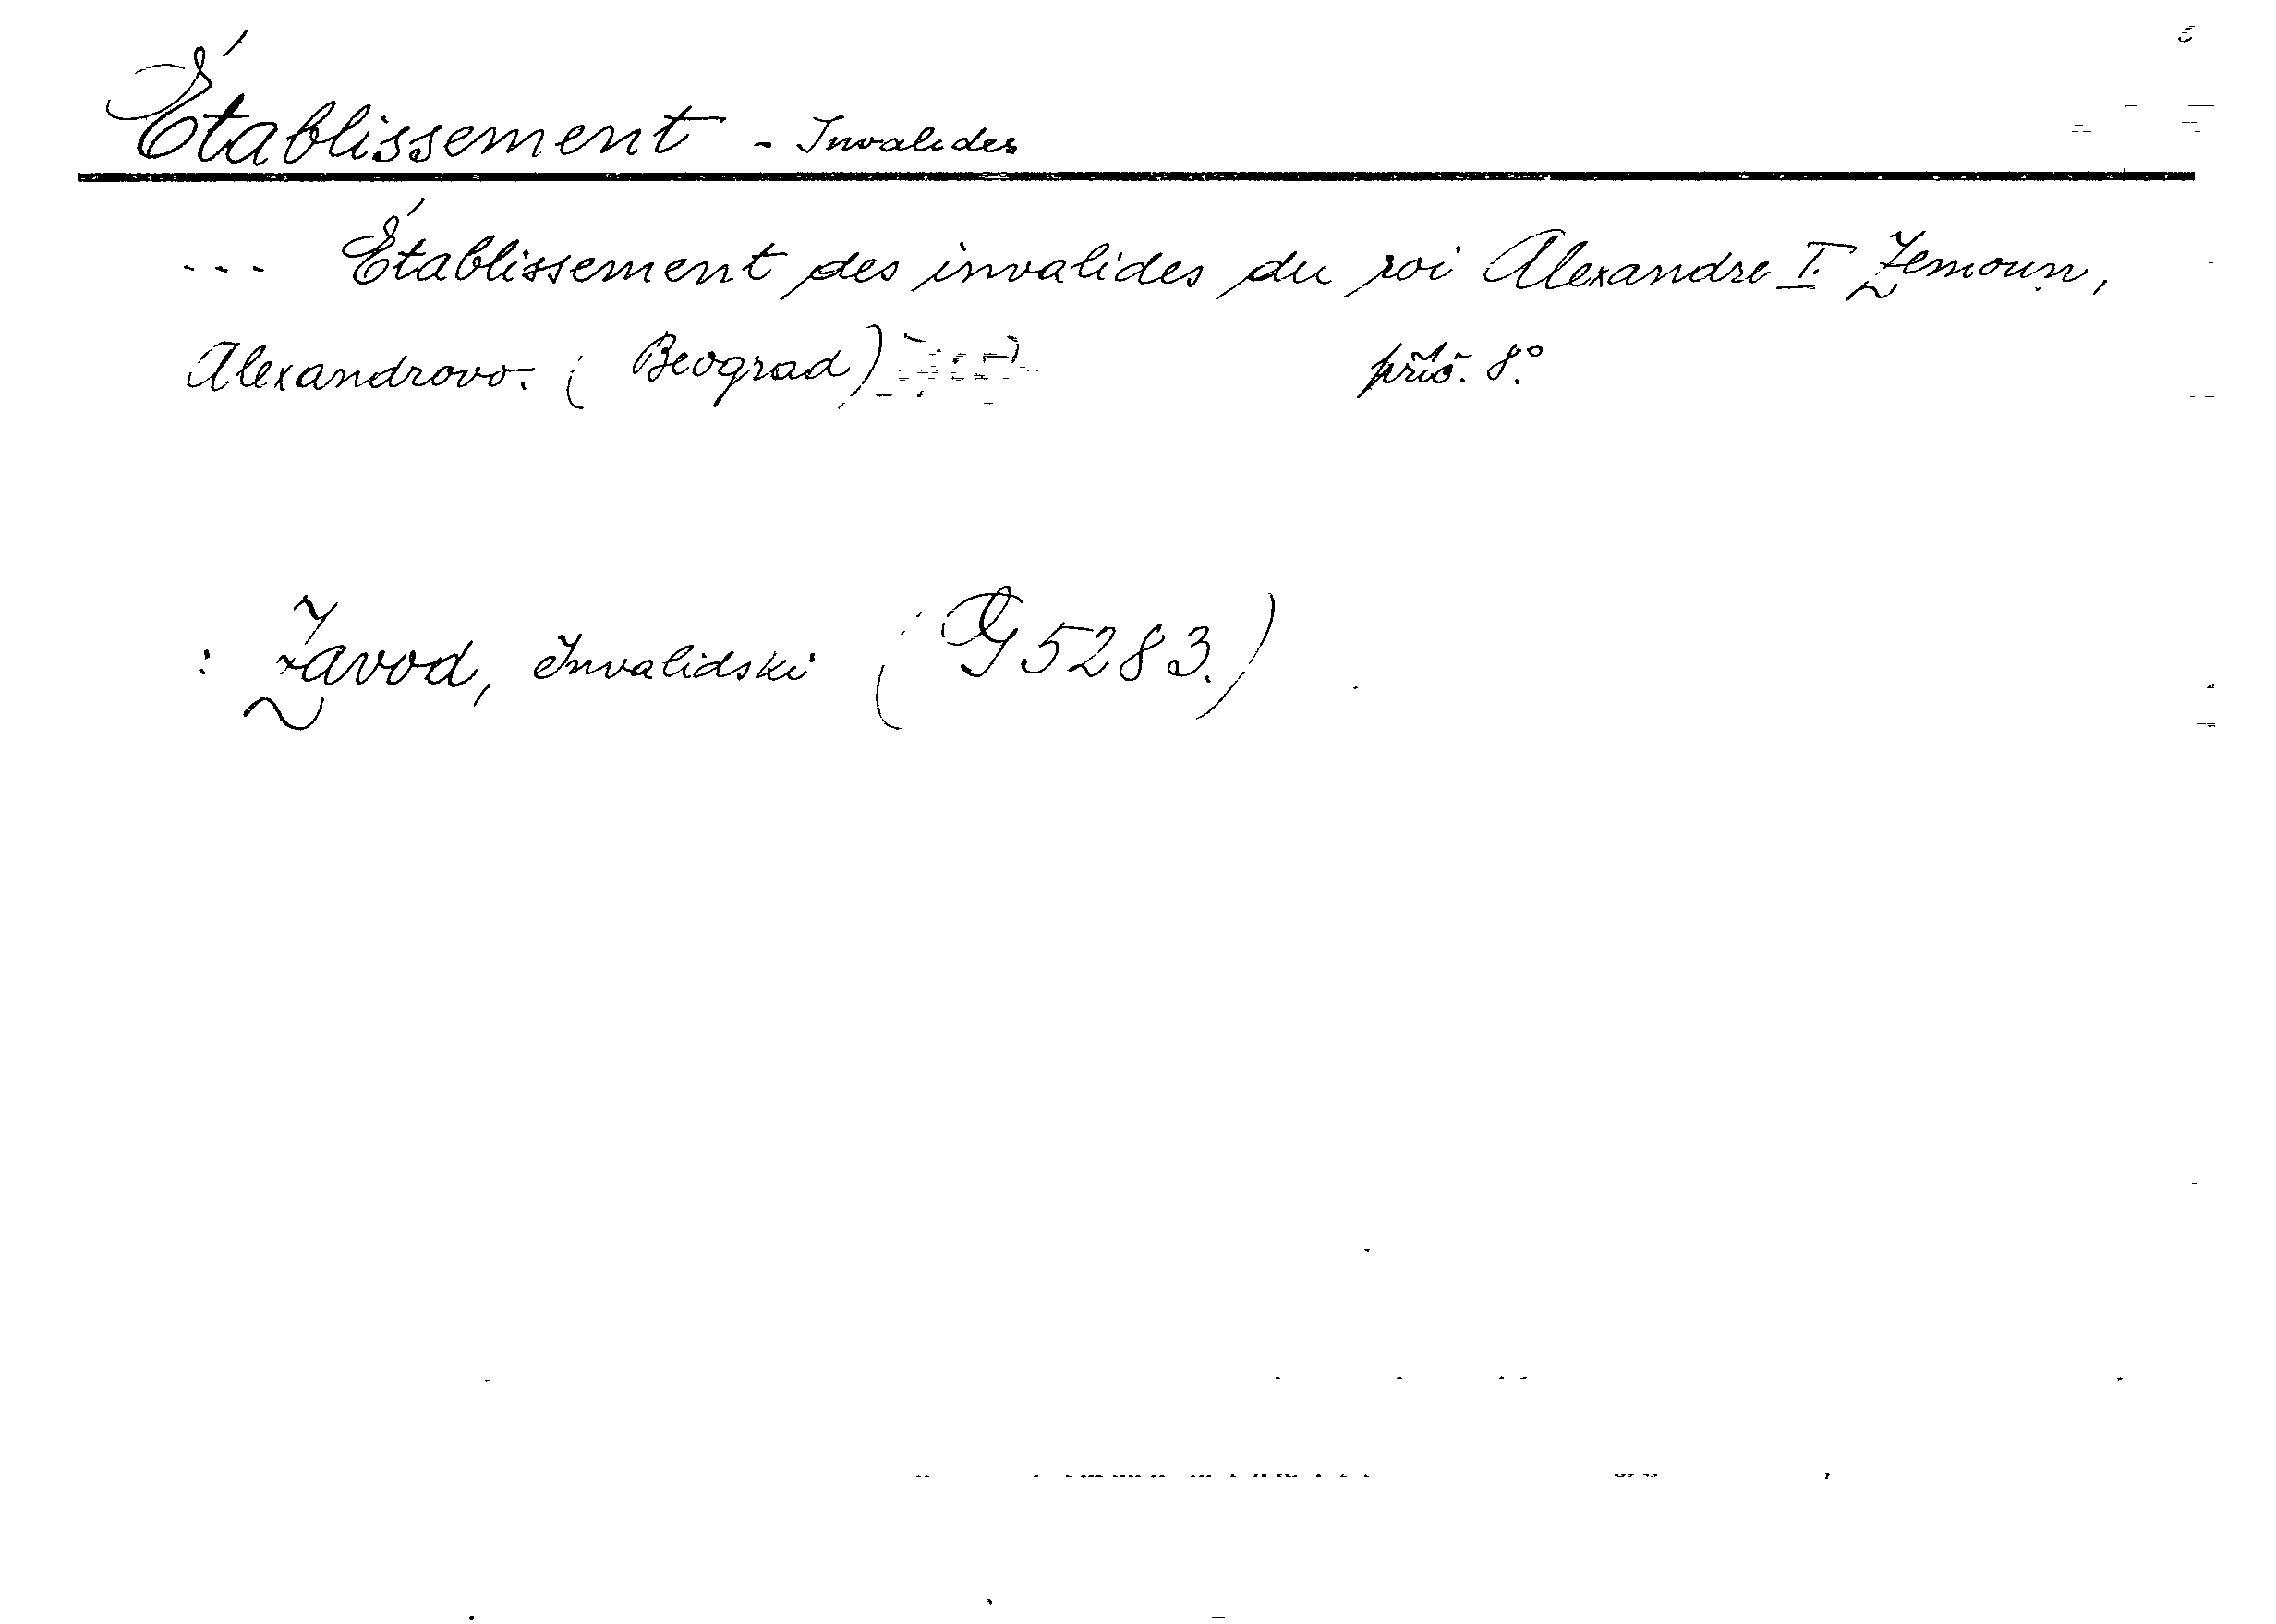 Établissement - Invalides
... Établissement des invalides du roi Alexandre I. Zemoun,
Alexandrovo. (Beograd) 8°.
: Zavod, Invalidski (G 5283.)